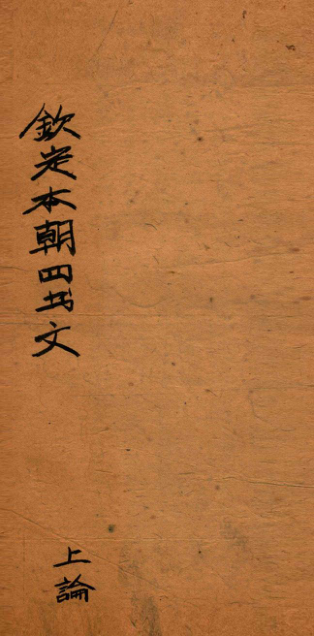 欽定本朝四书文
上論